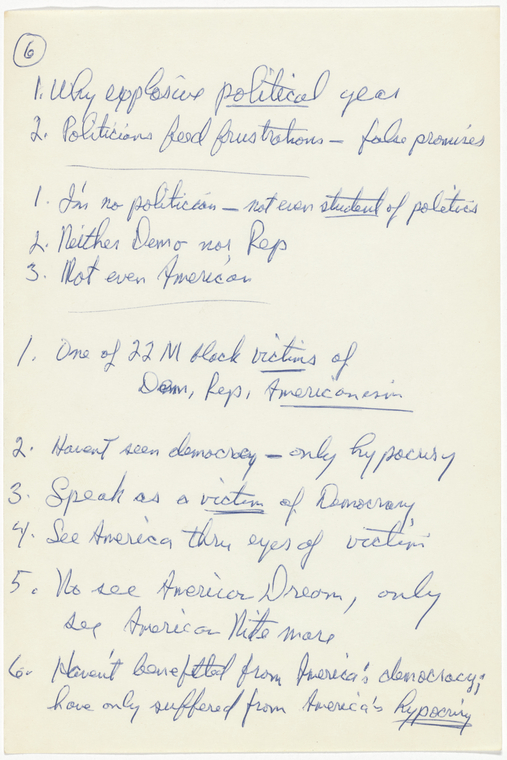 6
1. Why explosive political year
2. Politicians feed frustrations — false promises
1. I'm no politician — not even student of politics
2. Neither Demo nor Rep
3. Not even American
1. One of 22 M black victims of
Dem, Rep, Americanism
2. Haven't seen democracy — only hypocrisy
3. Speak as a victim of Democracy
4. See America thru eyes of victim
5. No see American Dream, only
see American Nite mare
6. Haven't benefitted from America's democracy;
have only suffered from America's hypocrisy